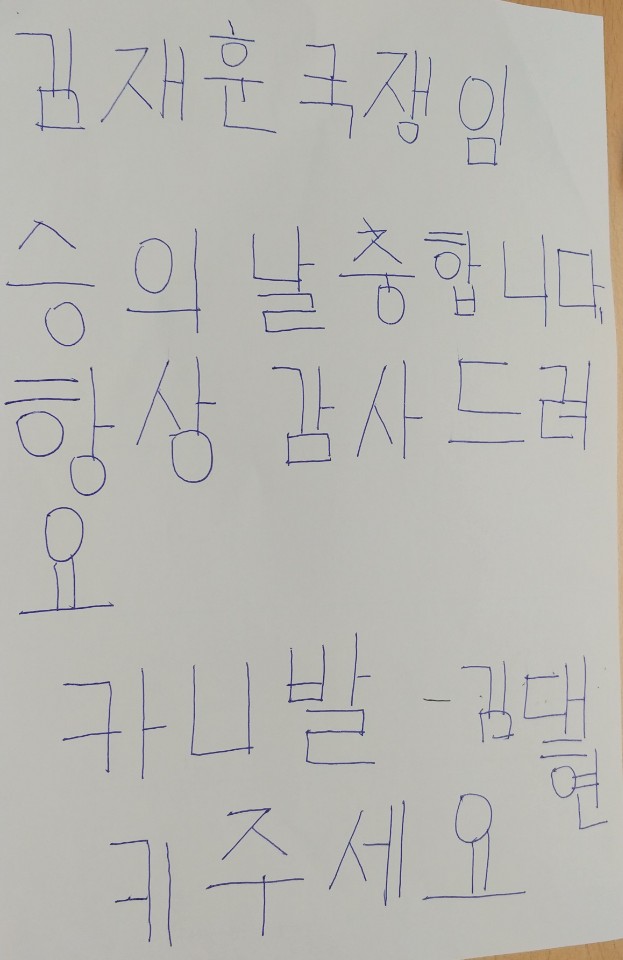 김재훈국쟁임
승의 날충합니다
항상 감사드레
요
카니발 -김대
현
키주세요